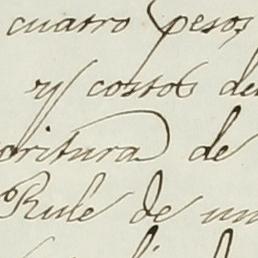 cuatro pesos
y costos de
critura de
Rule de un